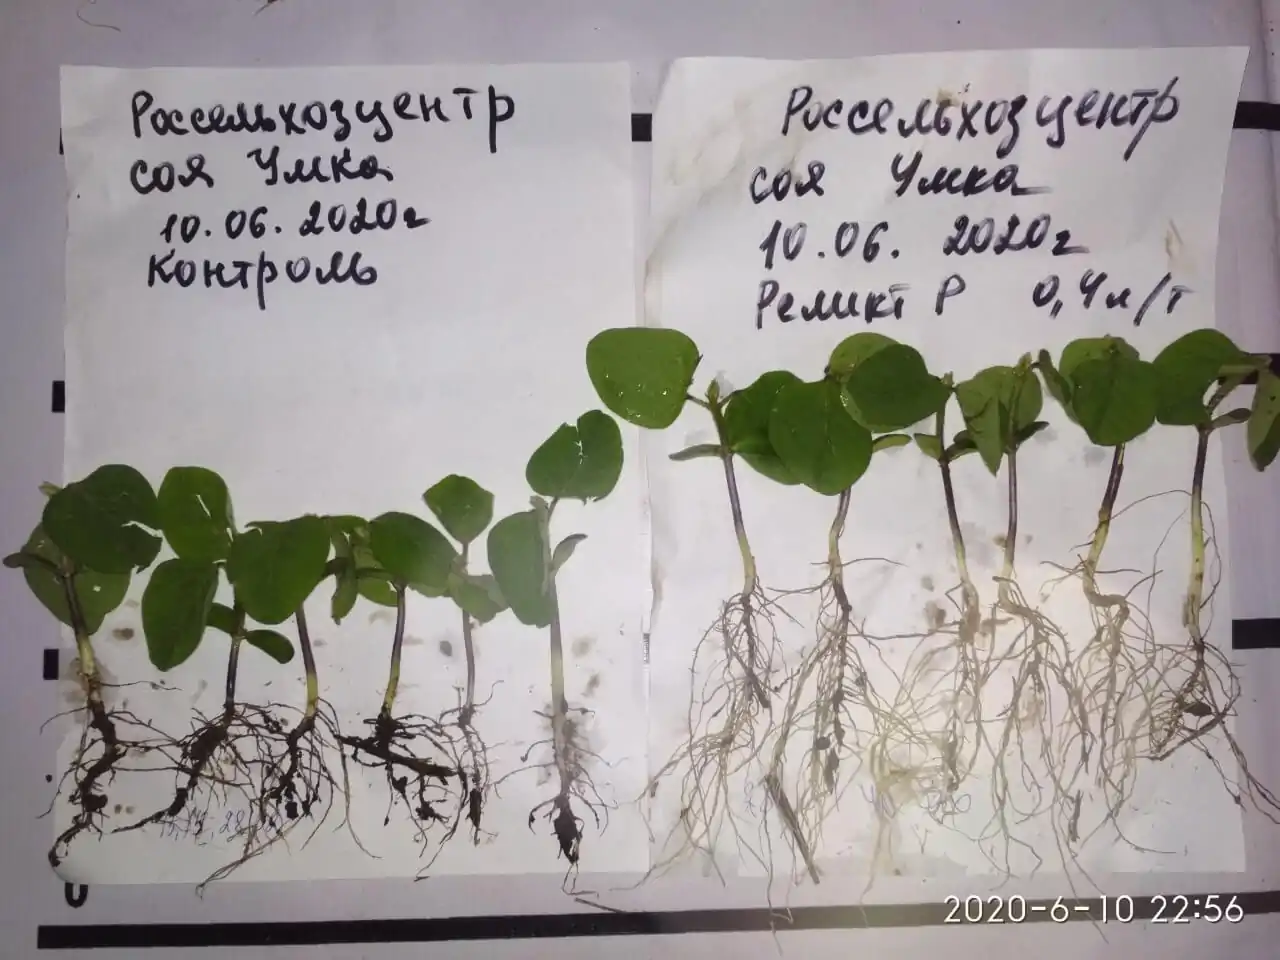 Россельхозцентр
соя Умка
10.06.2020г
Контроль
Россельхозцентр
соя Умка
10.06.2020г
Реликт Р 0,4л/т
2020-6-10 22:56